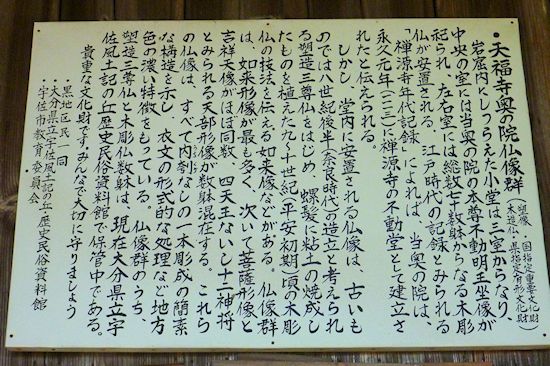 ・天福寺奥の院仏像群
塑像 国指定重要文化財
木造仏 県指定有形文化財
岩窟内にしつらえた小堂は三室からなり、
中央の室には当奥の院の本尊不動明王坐像が
祀られ、左右室には総数七十数躰からなる木彫
仏が安置される。江戸時代の記録とみられる
「禅源寺年代記録」によれば、当奥の院は、
永久元年(一一一三)に禅源寺の不動堂として建立さ
れたと伝えられる。
しかし、堂内に安置される仏像は、古いも
のでは八世紀後半(奈良時代)の造立と考えられ
る塑造三尊仏をはじめ、螺髪に粘土の焼成し
たものを植えた九〜十世紀(平安初期)頃の木彫
仏の技法を伝える如来像などがある。仏像群
は、如来形像が最も多く、次いで菩薩形像と
吉祥天像がほぼ同数、四天王ないし十二神将
とみられる天部形像が数躰混在する。これら
の仏像は、すべて内刳なしの一木彫成の簡素
な構造を示し、衣文の形式的な処理など地方
色の濃い特徴をもっている。仏像群のうち、
塑造三尊仏と木彫仏数躰は、現在大分県立宇
佐風土記の丘歴史民俗資料館で保管中である。
貴重な文化財です。みんなで大切に守りましょう
・黒地区民一同
・大分県立宇佐風土記の丘歴史民俗資料館
・宇佐市教育委員会